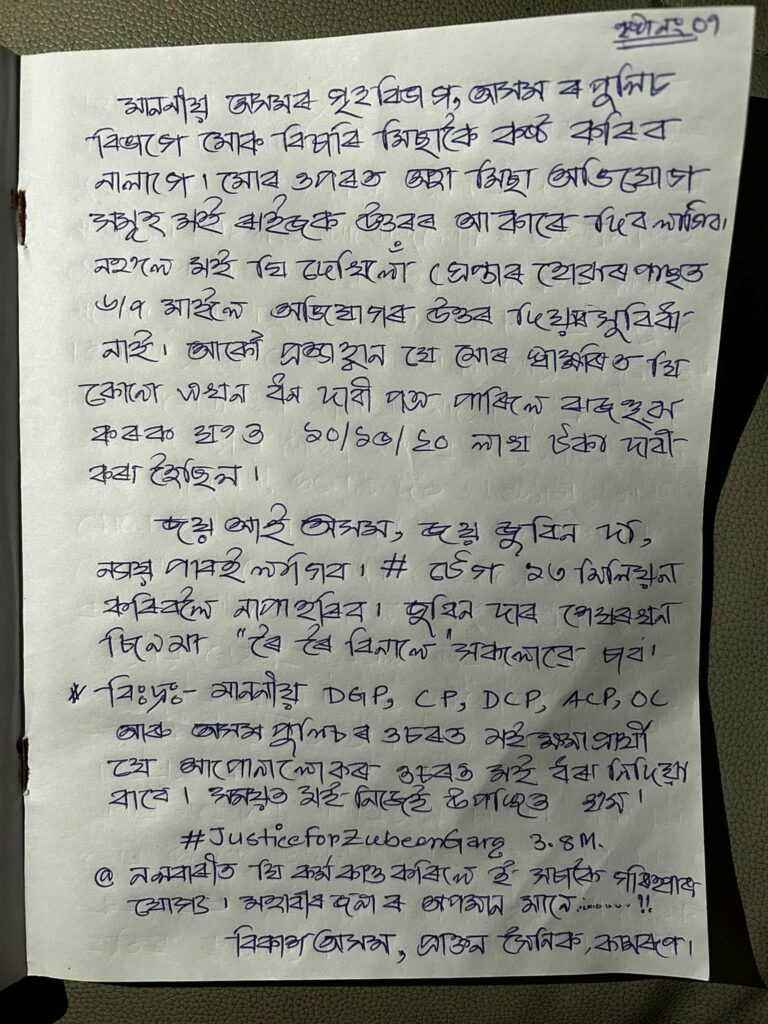 পৃষ্ঠা নং 01
মাননীয় অসমৰ গৃহ বিভাগ, অসম ৰ পুলিচ
বিভাগে মোক বিচাৰি মিছাকৈ কষ্ট কৰিব
নালাগে। মোৰ ওপৰত অহা মিছা অভিযোগ
সমূহ মই ৰাইজক উত্তৰৰ আকাৰে দিব লাগিব।
নহলে মই যি দেখিলোঁ গ্ৰেপ্তাৰ হোৱাৰ পাছত
৬/৭ মাহলৈ অভিযোগৰ উত্তৰ দিয়াৰ সুবিধা
নাই। আকৌ প্ৰত্যাহ্বান যে মোৰ স্বাক্ষৰিত যি
কোনো এখন ধন দাবী পত্ৰ পাৰিলে ৰাজহুৱা
কৰক য'ত ১০/১৫/২০ লাখ টকা দাবী
কৰা হৈছিল।
জয় আই অসম, জয় জুবিন দা,
ন্যায় পাবই লাগিব। # টেগ ১৩ মিলিয়ন
কৰিবলৈ নাপাহৰিব। জুবিন দাৰ শেষৰখন
চিনেমা "ৰৈ ৰৈ বিনালে" সকলোৱে চাব।
* বিঃদ্ৰঃ- মাননীয় DGP, CP, DCP, ACP, OC
আৰু অসম পুলিচ ৰ ওচৰত মই ক্ষমা প্ৰাৰ্থী
যে আপোনালোকৰ ওচৰত মই ধৰা নিদিয়া
বাবে। সময়ত মই নিজেই উপস্থিত হ'ম।
#JusticeforZubeenGarg 3.8M.
@ নলবাৰীত যি কৰ্ম কাণ্ড কৰিলে ই সচাকৈ
যোগ্য। মহাবীৰ ৰ অপমান মানে.......!!
বিকাশ অসম, প্ৰাক্তন সৈনিক, কামৰূপ।